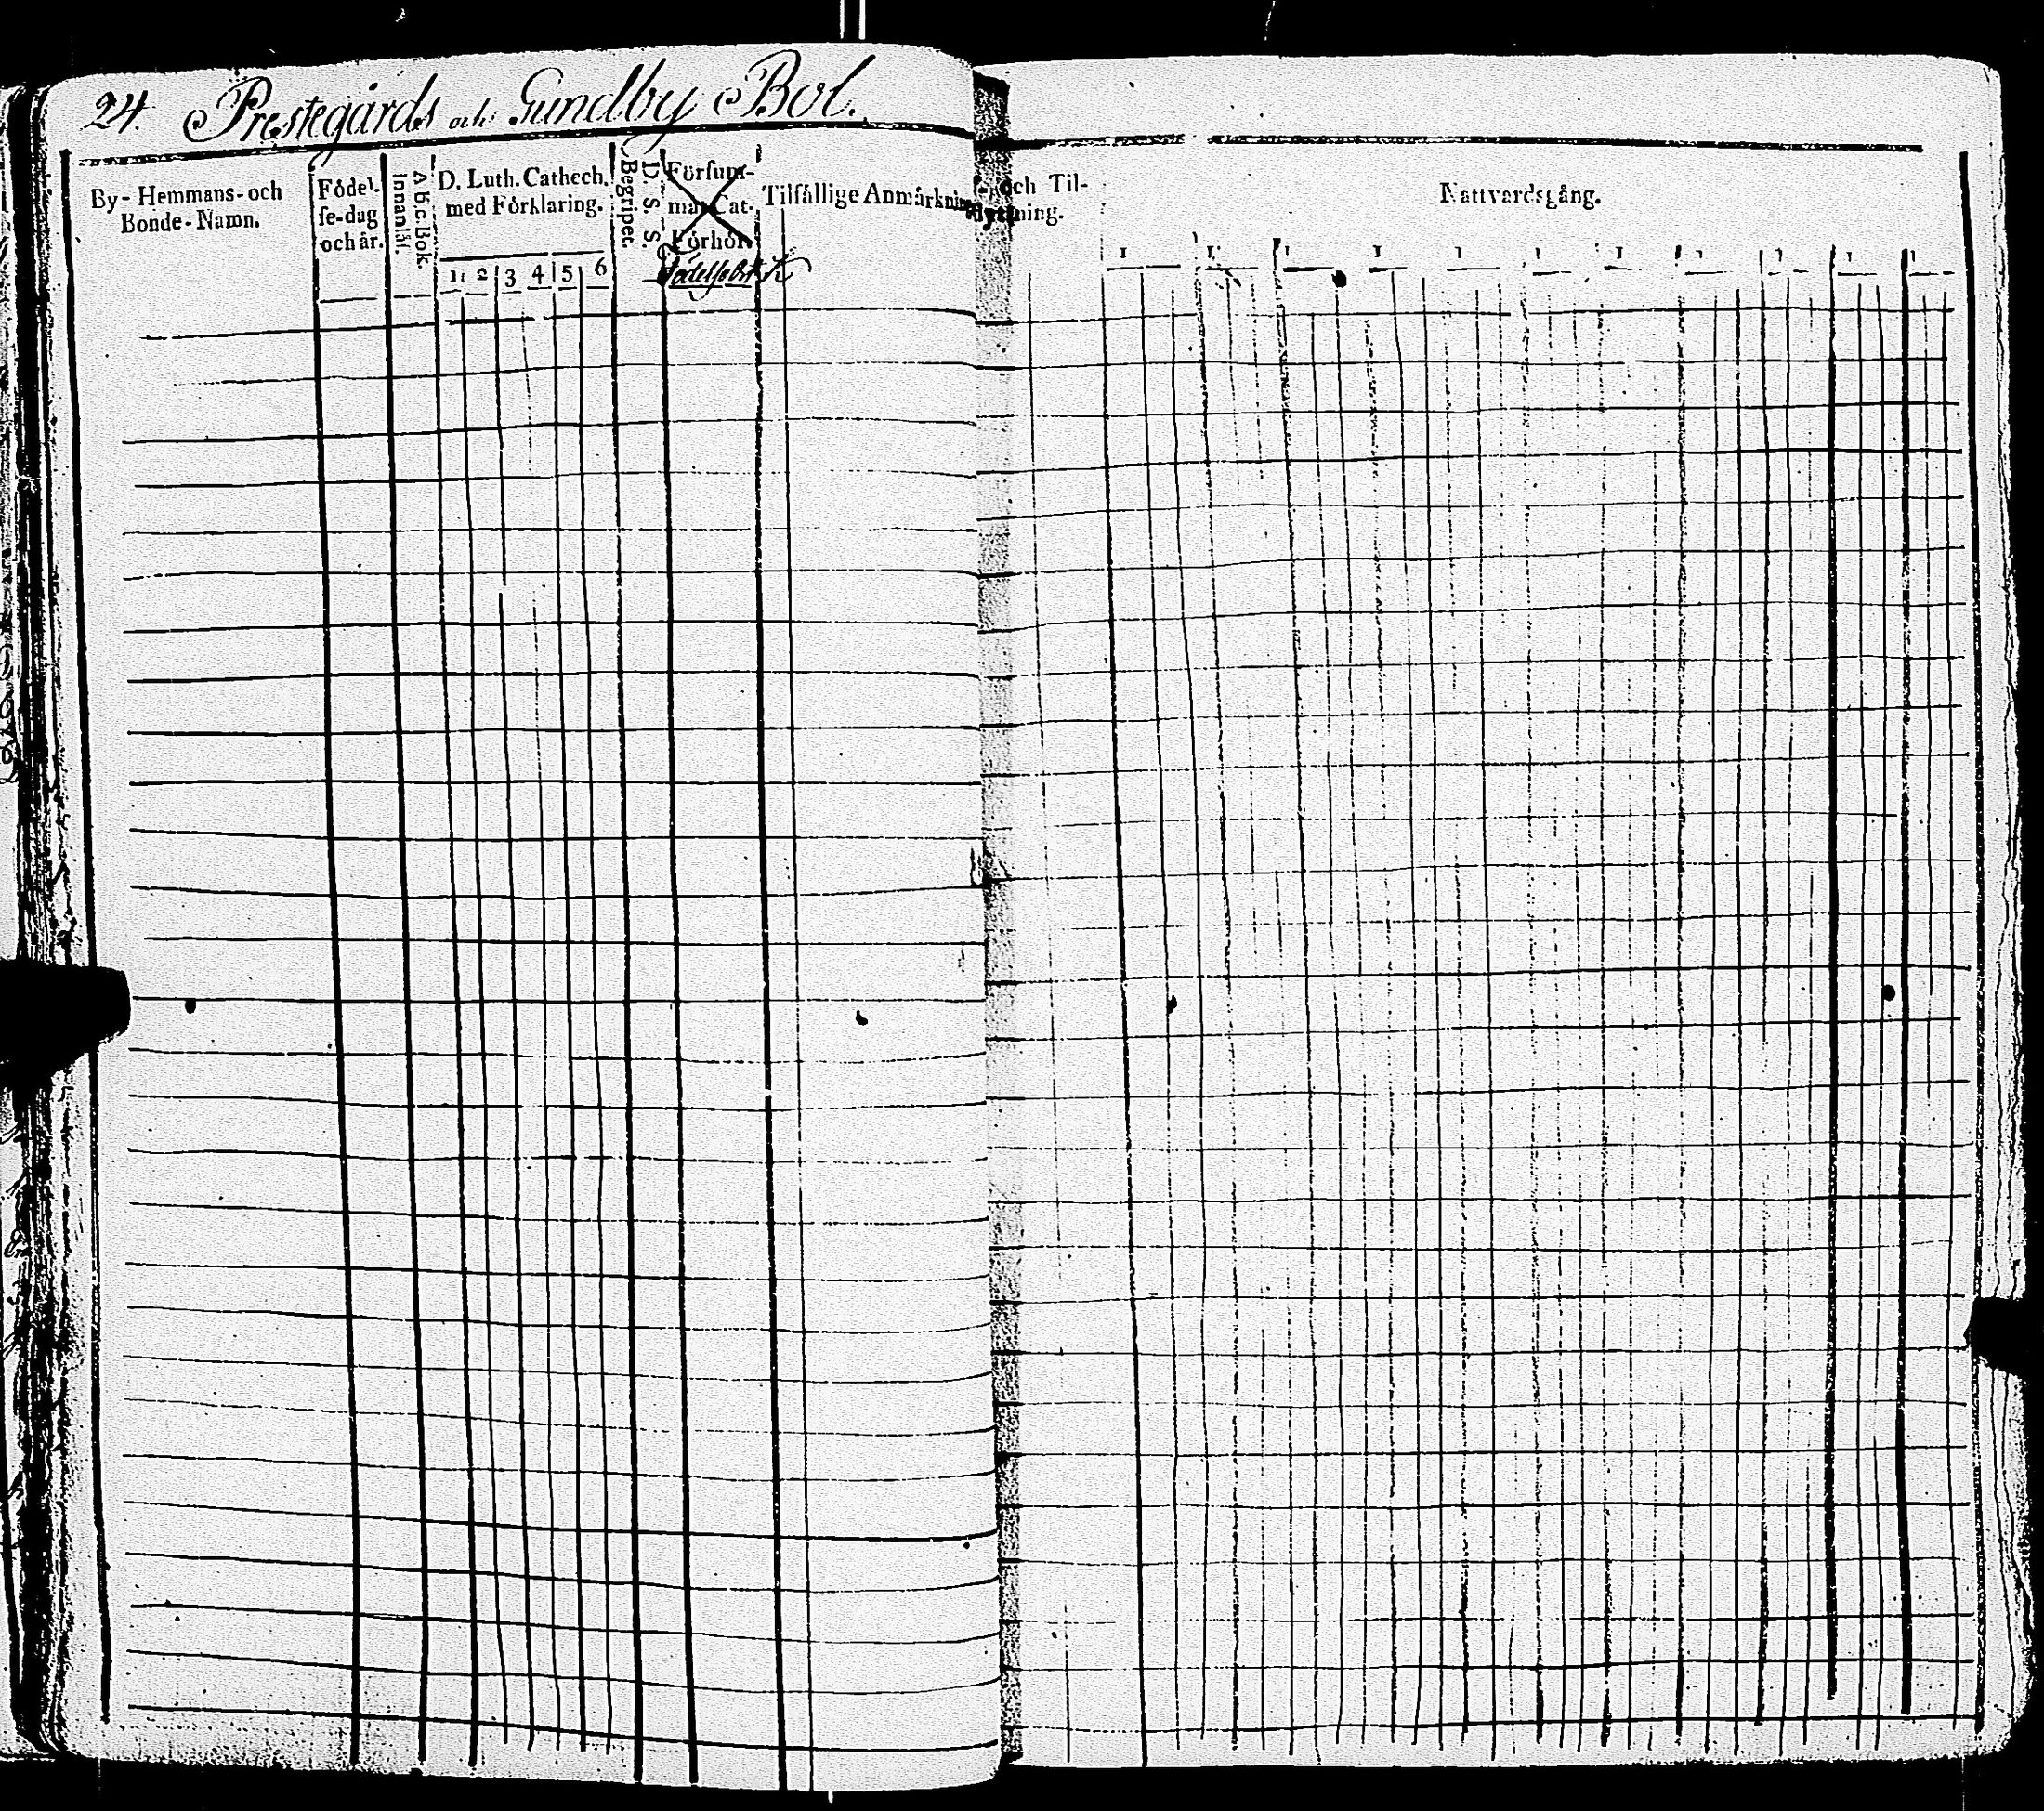 24. Prestegårds och Sundby Bol.
By- Hemmans- och
Bonde-Namn.
Födel-
se-dag
och år.
A b c Bok.
innanläf.
D. Luth. Cathech.
med Förklaring.
1 2 3 4 5 6
D. S. S.
Begriper.
Försum-
mat Cat.
Förhör.
Födelseort
Tilfällige Anmärknin
och Til-
flyttning.
Nattvardsgång.
1 1 1 1 1 1 1 1 1 1 1